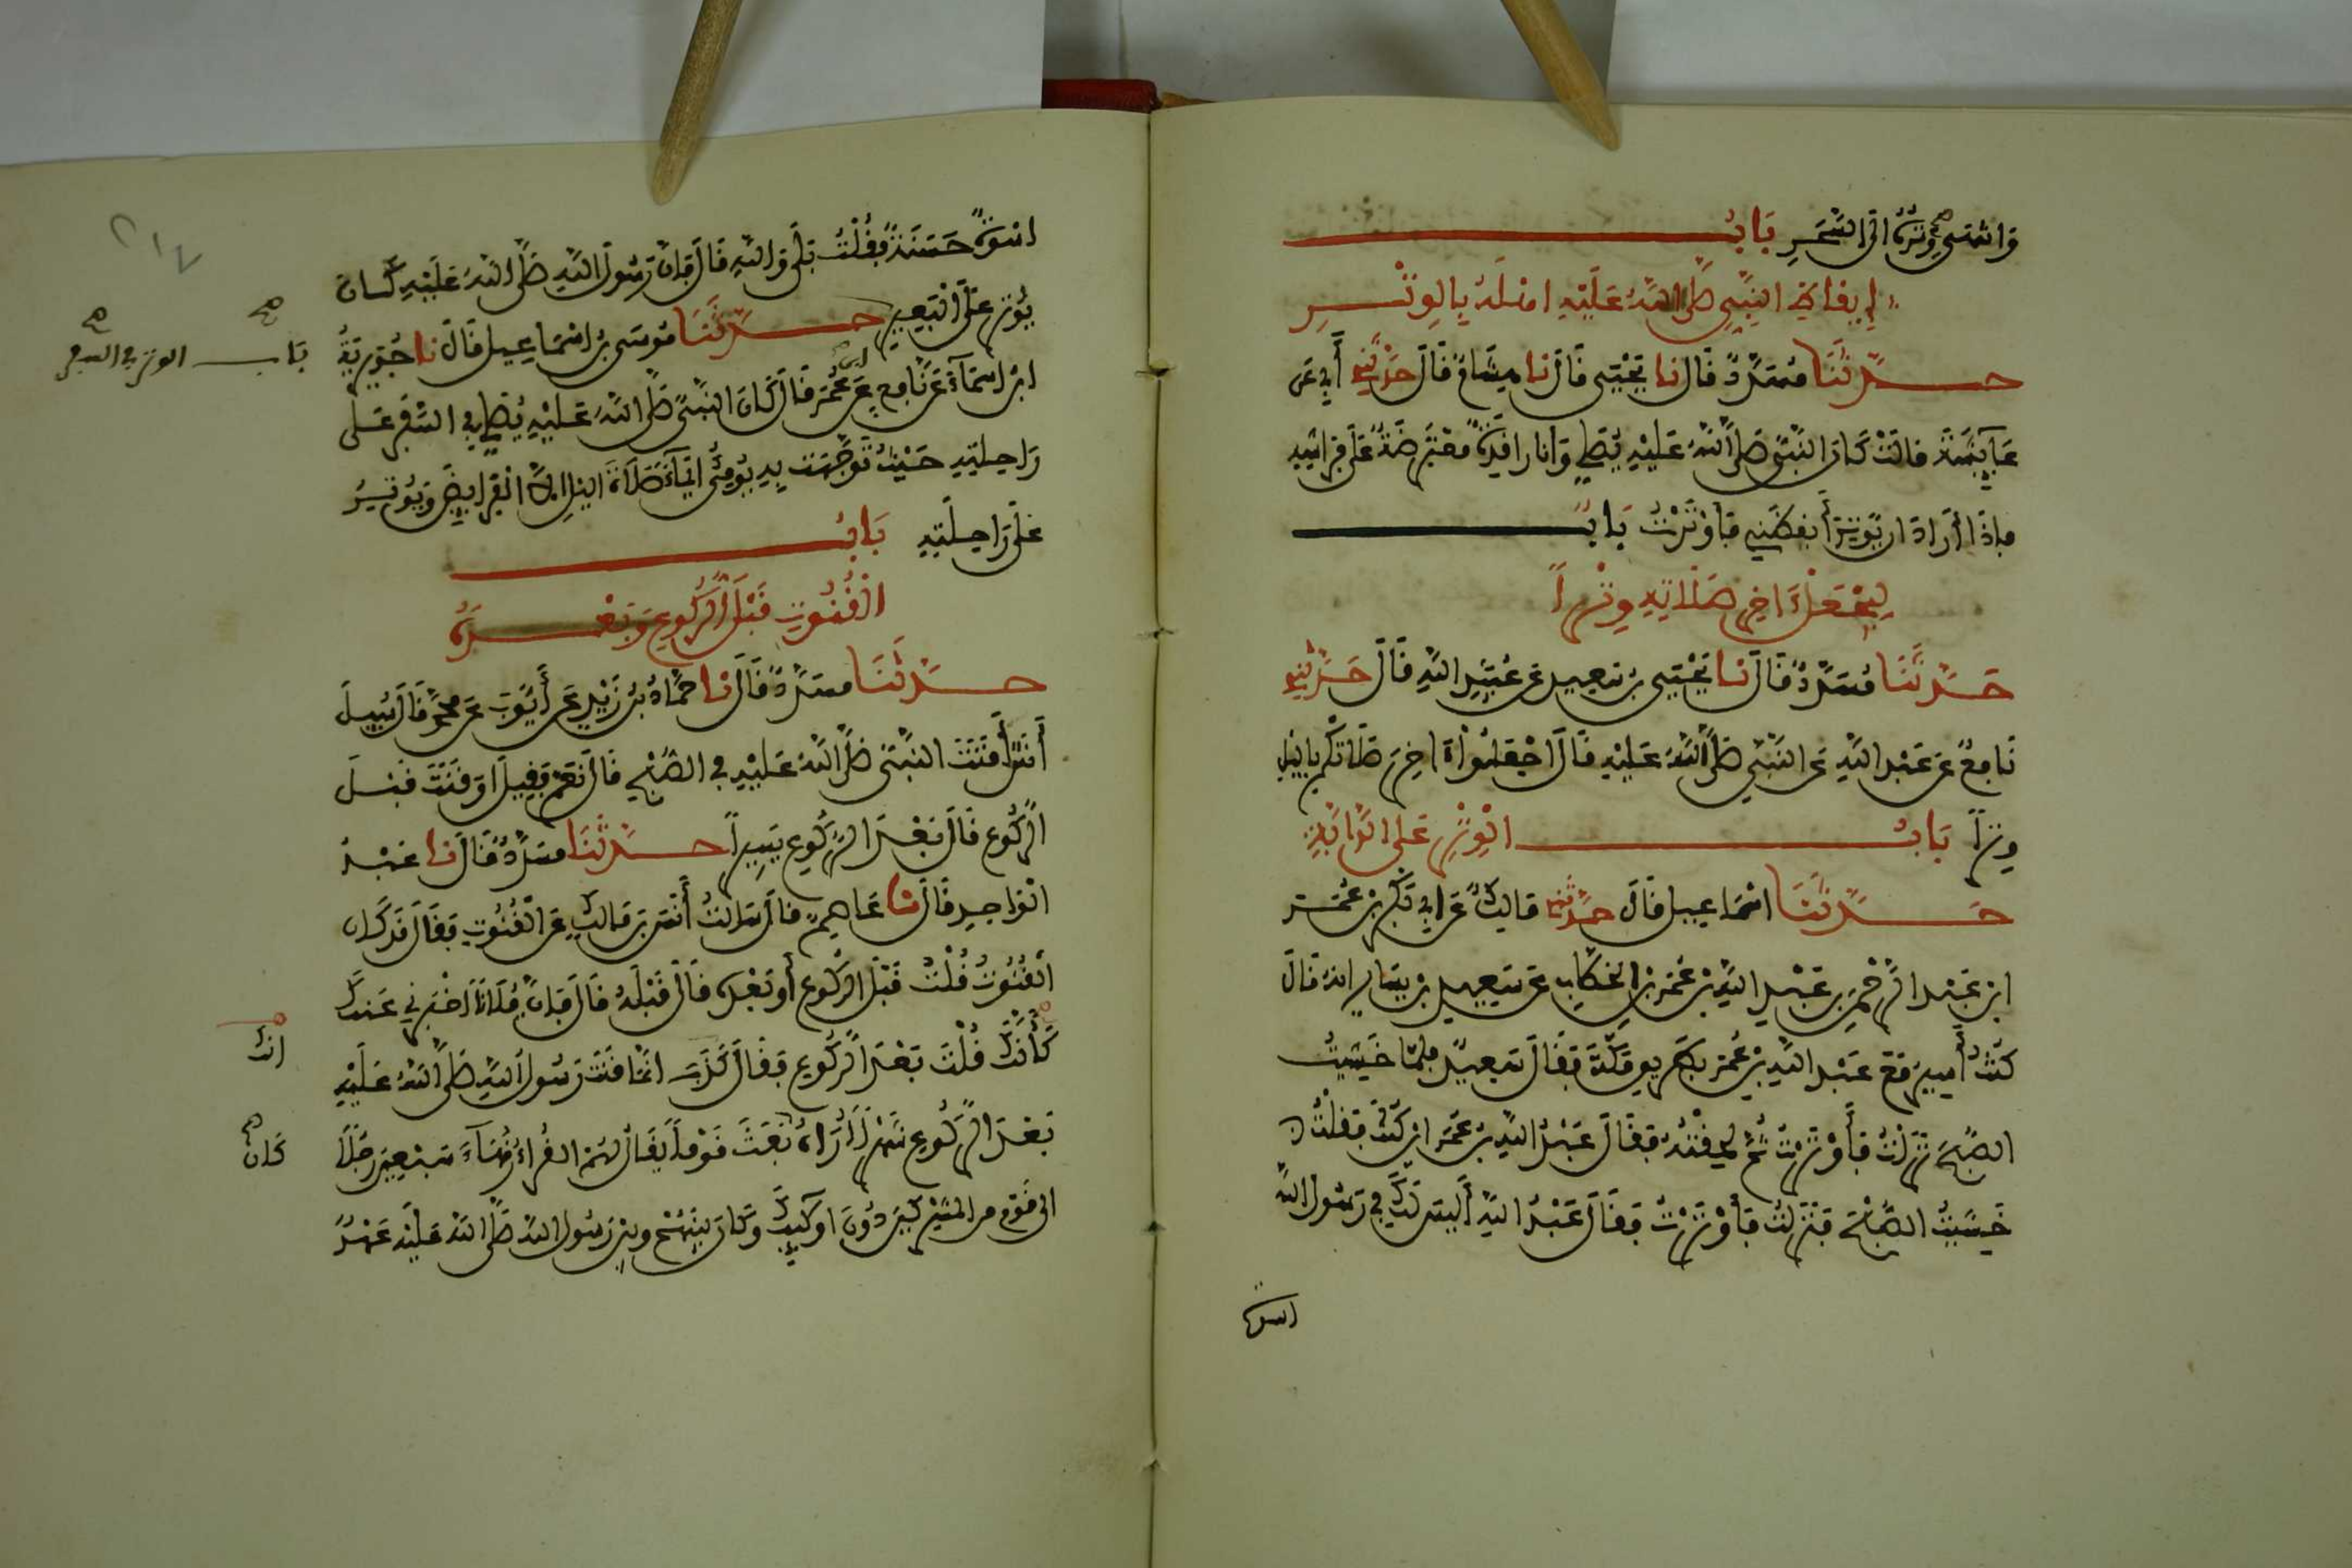 وانتهى وتره الى السحر باب
إيقاظ النبي صلى الله عليه اهله بالوتر
حدثنا مسدد قال نا يحيى قال نا هشام قال حدثني أبي عن
عايشة قالت كان النبي صلى الله عليه يصلي وانا راقدة معترضة على فراشه
فإذا أراد ان يوتر أيقظني فأوترت باب
ليجعل اخر صلاته وترا
حدثنا مسدد قال نا يحيى بن سعيد عن عبيد الله قال حدثني
نافع عن عبد الله عن النبي صلى الله عليه قال اجعلوا اخر صلاتكم بالليل
وترا باب الوتر على الدابة
حدثنا اسماعيل قال حدثني مالك عن ابي بكر بن عمر
ابن عبد الرحمن بن عبد الله بن عمر بن الخطاب عن سعيد بن يسار انه قال
كنت أسير مع عبد الله بن عمر بطريق مكة فقال سعيد فلما خشيت
الصبح نزلت فأوترت ثم لحقته فقال عبد الله بن عمر اين كنت فقلت
خشيت الصبح فنزلت فأوترت فقال عبد الله أليس لك في رسول الله
اسوة
اسوة حسنة فقلت بلى والله قال فإن رسول الله صلى الله عليه كان
يوتر على البعير حدثنا موسى بن اسماعيل قال نا جويرية
باب الوتر في السفر
ابن اسماء عن نافع عن ابن عمر قال كان النبي صلى الله عليه يصلي في السفر على
راحلته حيث توجهت به يومئ ايماء صلاة الليل الا الفرايض ويوتر
على راحلته باب
القنوت قبل الركوع وبعده
حدثنا مسدد قال نا حماد بن زيد عن أيوب عن محمد قال سيل
أنس أقنت النبي صلى الله عليه في الصبح قال نعم فقيل اوقنت قبل
الركوع قال بعد الركوع يسيرا حدثنا مسدد قال نا عبد
الواحد قال نا عاصم قال سالت أنس بن مالك عن القنوت فقال قد كان
القنوت قلت قبل الركوع أو بعده قال قبله قال فإن فلانا اخبرني عنك
كأنك قلت بعد الركوع فقال كذب انما قنت رسول الله صلى الله عليه
انك
بعد الركوع شهرا أراه بعث قوما يقال لهم القراء زهاء سبعين رجلا
كان
الى قوم من المشركين دون اوليك وكان بينهم وبين رسول الله صلى الله عليه عهد